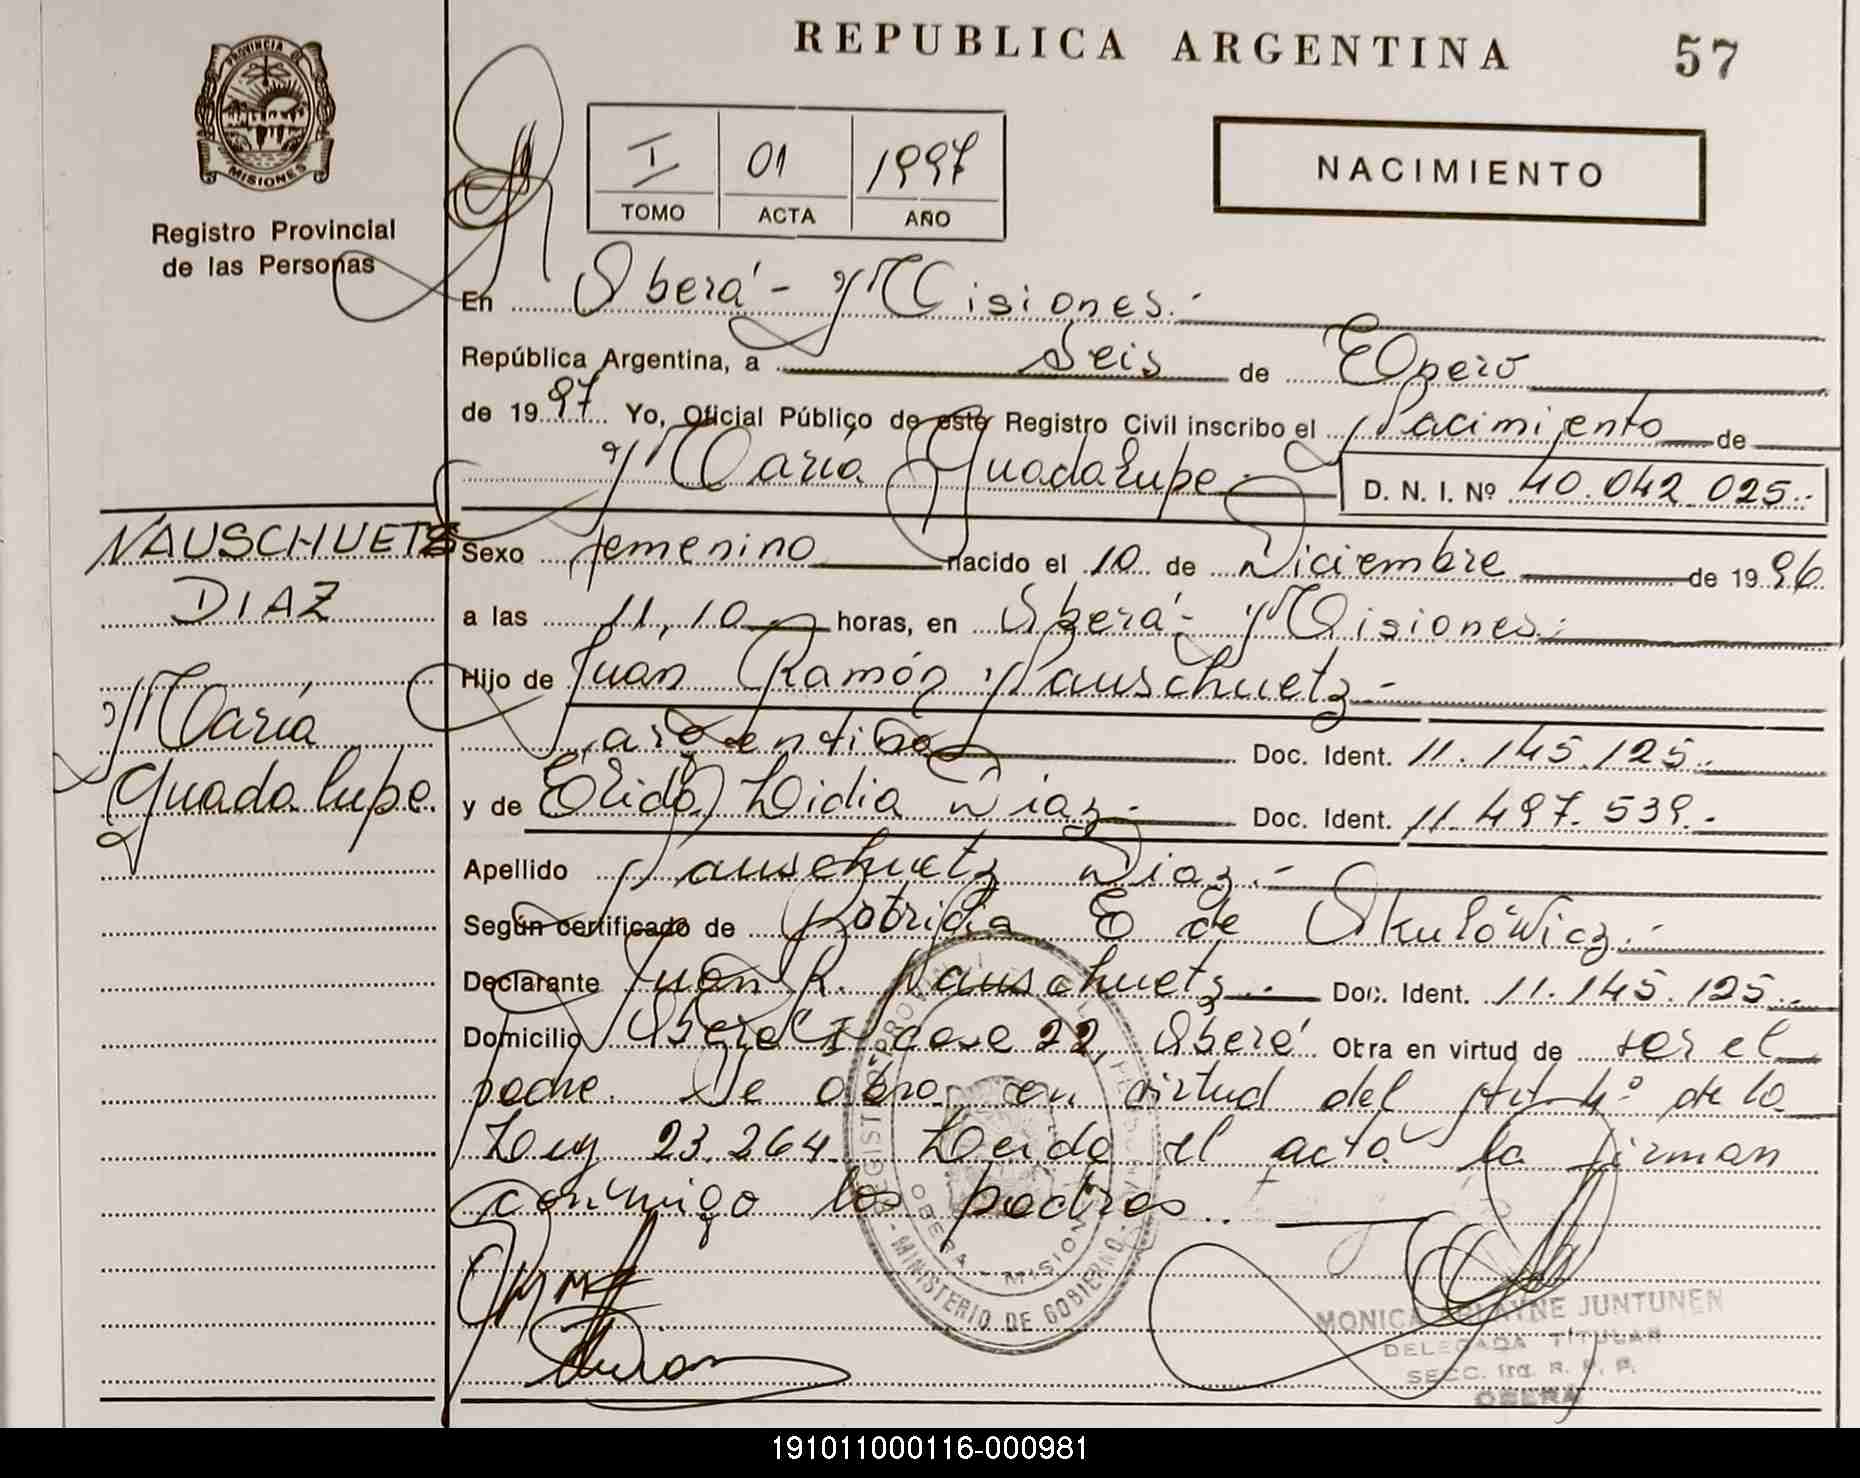 REPUBLICA ARGENTINA
57
PROVINCIA DE
MISIONES
Registro Provincial
de las Personas
I 01 1997
TOMO ACTA AÑO
NACIMIENTO
En Oberá - Misiones.-
República Argentina, a Seis de Enero
de 1997 Yo, Oficial Público de este Registro Civil inscribo el Nacimiento de
María Guadalupe.- D. N. I. Nº 40.042.025.-
NAUSCHUETZ
DIAZ
María
Guadalupe.
Sexo femenino nacido el 10 de Diciembre de 1996
a las 11,10 horas, en Oberá - Misiones.-
Hijo de Juan Ramón Nauschuetz -
argentino Doc. Ident. 11.145.125.-
y de Elida Lidia Diaz.- Doc. Ident. 11.497.539.-
Apellido Nauschuetz Diaz.-
Según certificado de E de Skulowicz.-
Declarante Juan R. Nauschuetz.- Doc. Ident. 11.145.125.-
Domicilio casa 22, Oberá Obra en virtud de ser el
padre. Se obro en virtud del Art 4º de la
Ley 23.264. Leida el acta la firman
conmigo los padres..
MINISTERIO DE GOBIERNO
OBERA - MISIONES
MONICA JUNTUNEN
DELEGADA TITULAR
SECC. 1ra. R. P. P.
OBERA
191011000116-000981